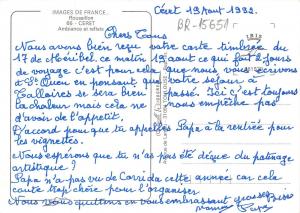 IMAGES DE FRANCE
Roussillon
66 - CERET
Ambiance et reflets
Céret 19 Aout 1999.
BR-15651
IRIS
Chers Tous
Nous avons bien reçu votre carte timbrée du
17 de Méribel, ce matin 19 aout ce qui fait 2 jours
de voyage, c'est pour cela que nous vous écrivons
à St Quen en pensant que votre séjour à
Talloires se sera bien passé. Ici c'est toujours
la chaleur mais cela ne nous empêche pas
d'avoir de l'appetit.
D'accord pour que tu appelles Papa à la rentrée pour
les vignettes.
Nous espérons que tu n'as pas été déçue du patinage
artistique.
Papa n'a pas vu de Corrida cette année car cela
coute trop chère pour l'organiser
Nous vous quittons en vous embrassant grosses Bises
Papa